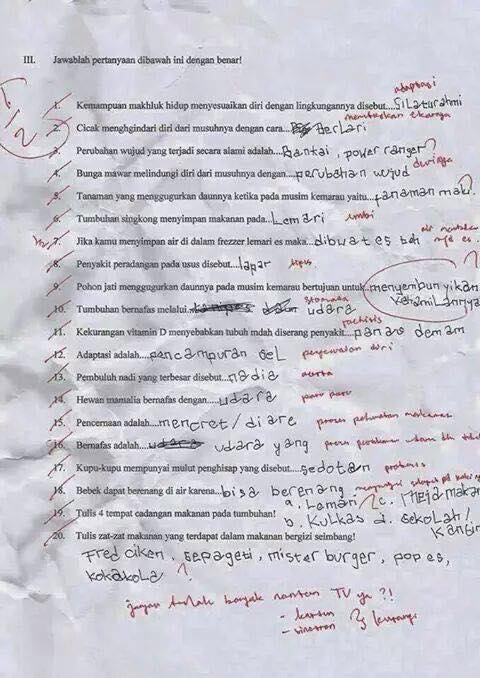 III. Jawablah pertanyaan dibawah ini dengan benar!
adaptasi
1. Kemampuan makhluk hidup menyesuaikan diri dengan lingkungannya disebut....Silaturahmi
2. Cicak menghgindari diri dari musuhnya dengan cara... Berlari
3. Perubahan wujud yang terjadi secara alami adalah....Bantai, power ranger ?
durinya
4. Bunga mawar melindungi diri dari musuhnya dengan....perubahan wujud
5. Tanaman yang menggugurkan daunnya ketika pada musim kemarau yaitu....panaman
6. Tumbuhan singkong menyimpan makanan pada....Lemari umbi
½ 7. Jika kamu menyimpan air di dalam frezzer lemari es maka...dibwat es
8. Penyakit peradangan pada usus disebut....lapar tipus
9. Pohon jati menggugurkan daunnya pada musim kemarau bertujuan untuk..menyembunyikan
kehamilannya
stomata
10. Tumbuhan bernafas melalui.... udara
11. Kekurangan vitamin D menyebabkan tubuh mdah diserang penyakit....panas demam
12. Adaptasi adalah....pencampuran GeL penyesuaian diri
13. Pembuluh nadi yang terbesar disebut....nadia aorta
14. Hewan mamalia bernafas dengan.....udara paru paru
15. Pencernaan adalah....mencret/diare proses
16. Bernafas adalah.... udara yang proses
17. Kupu-kupu mempunyai mulut penghisap yang disebut....sedotan probosis
18. Bebek dapat berenang di air karena....bisa berenang
a. Lemari c. meja makan
19. Tulis 4 tempat cadangan makanan pada tumbuhan!
b. Kulkas d. sekolah/
kantin
20. Tulis zat-zat makanan yang terdapat dalam makanan bergizi seimbang!
Fred ciken, sepageti, mister burger, popes,
kokakola ?
jangan terlalu banyak nonton TV ya ?!
- kartun
- sinetron